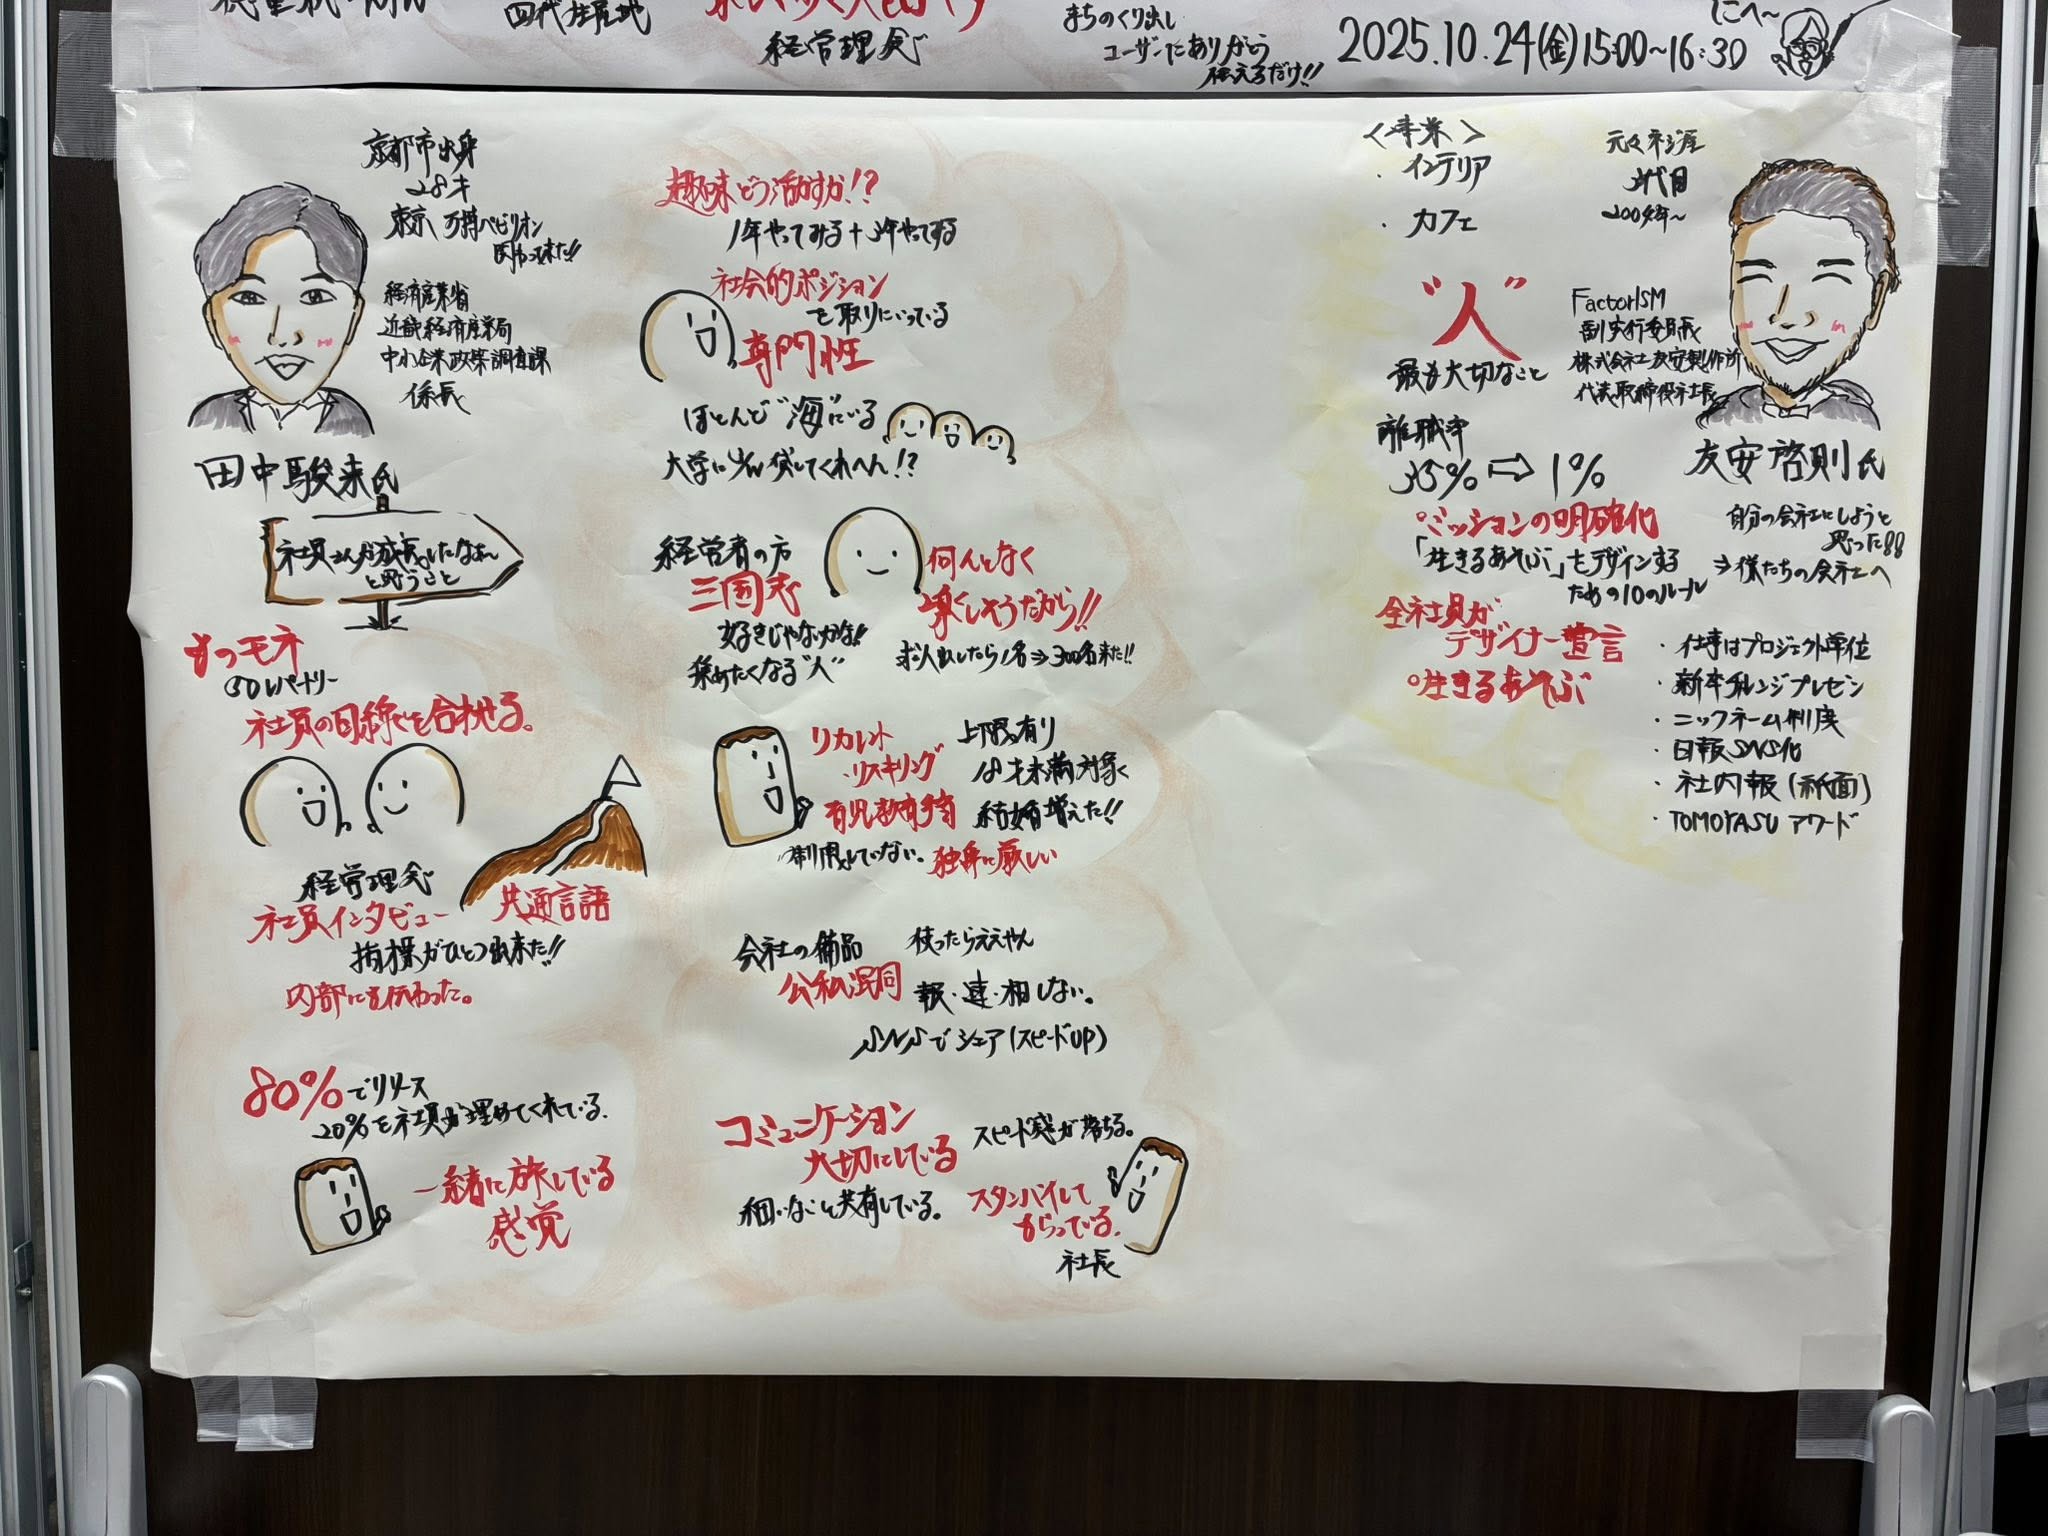 四代 生産地
経営理念
まちのくり出し
ユーザーにありがとう
伝えるだけ!!
2025.10.24(金)15:00~16:30
京都市出身
28才
東京 万博パビリオン
関わって来た!!
経済産業省
近畿経済産業局
中小企業政策調査課
係長
田中駿来氏
社員さんが成長したなぁ~
と思うこと
ものモネ
30レパートリー
社員の目線を合わせる。
経営理念
社員インタビュー
共通言語
指標がひとつ出来た!!
内部にも伝わった。
80%でリリース
20%を社員が埋めてくれている。
一緒に旅している
感覚
趣味どう活かすか!?
1年やってみる+3年やってする
社会的ポジション
を取りにいっている
専門性
ほとんど"海"にいる
大学に 貸してくれへん!?
経営者の方
三国志
好きじゃないかな!!
集めたくなる"人"
何んとなく
楽しそうだから!!
求人出したら1名⇒300名来た!!
リカレント
・リスキリング
育児教育手当
制限していない。
上限有り
18才未満対象
結婚増えた!!
独身に厳しい
会社の備品
公私混同
使ったらええやん
報・連・相しない。
SNSでシェア(スピードUP)
コミュニケーション
大切にしている
スピード感が落ちる。
細いことを共有している。
スタンバイして
もらっている。
社長
<事業>
・インテリア
・カフェ
元々ネジ屋
3代目
2004年~
"人"
最も大切なこと
FactorISM
副実行委員長
株式会社友安製作所
代表取締役社長
友安啓則氏
離職率
35%⇨1%
自分の会社にしようと
思った!!
⇒僕たちの会社へ
°ミッションの明確化
「生きるあそぶ」をデザインする
ための10のルール
全社員が
デザイナー宣言
°生きるあそぶ
・仕事はプロジェクト単位
・新卒チャレンジプレゼン
・ニックネーム制度
・日報SNS化
・社内報(紙面)
・TOMOYASU アワード